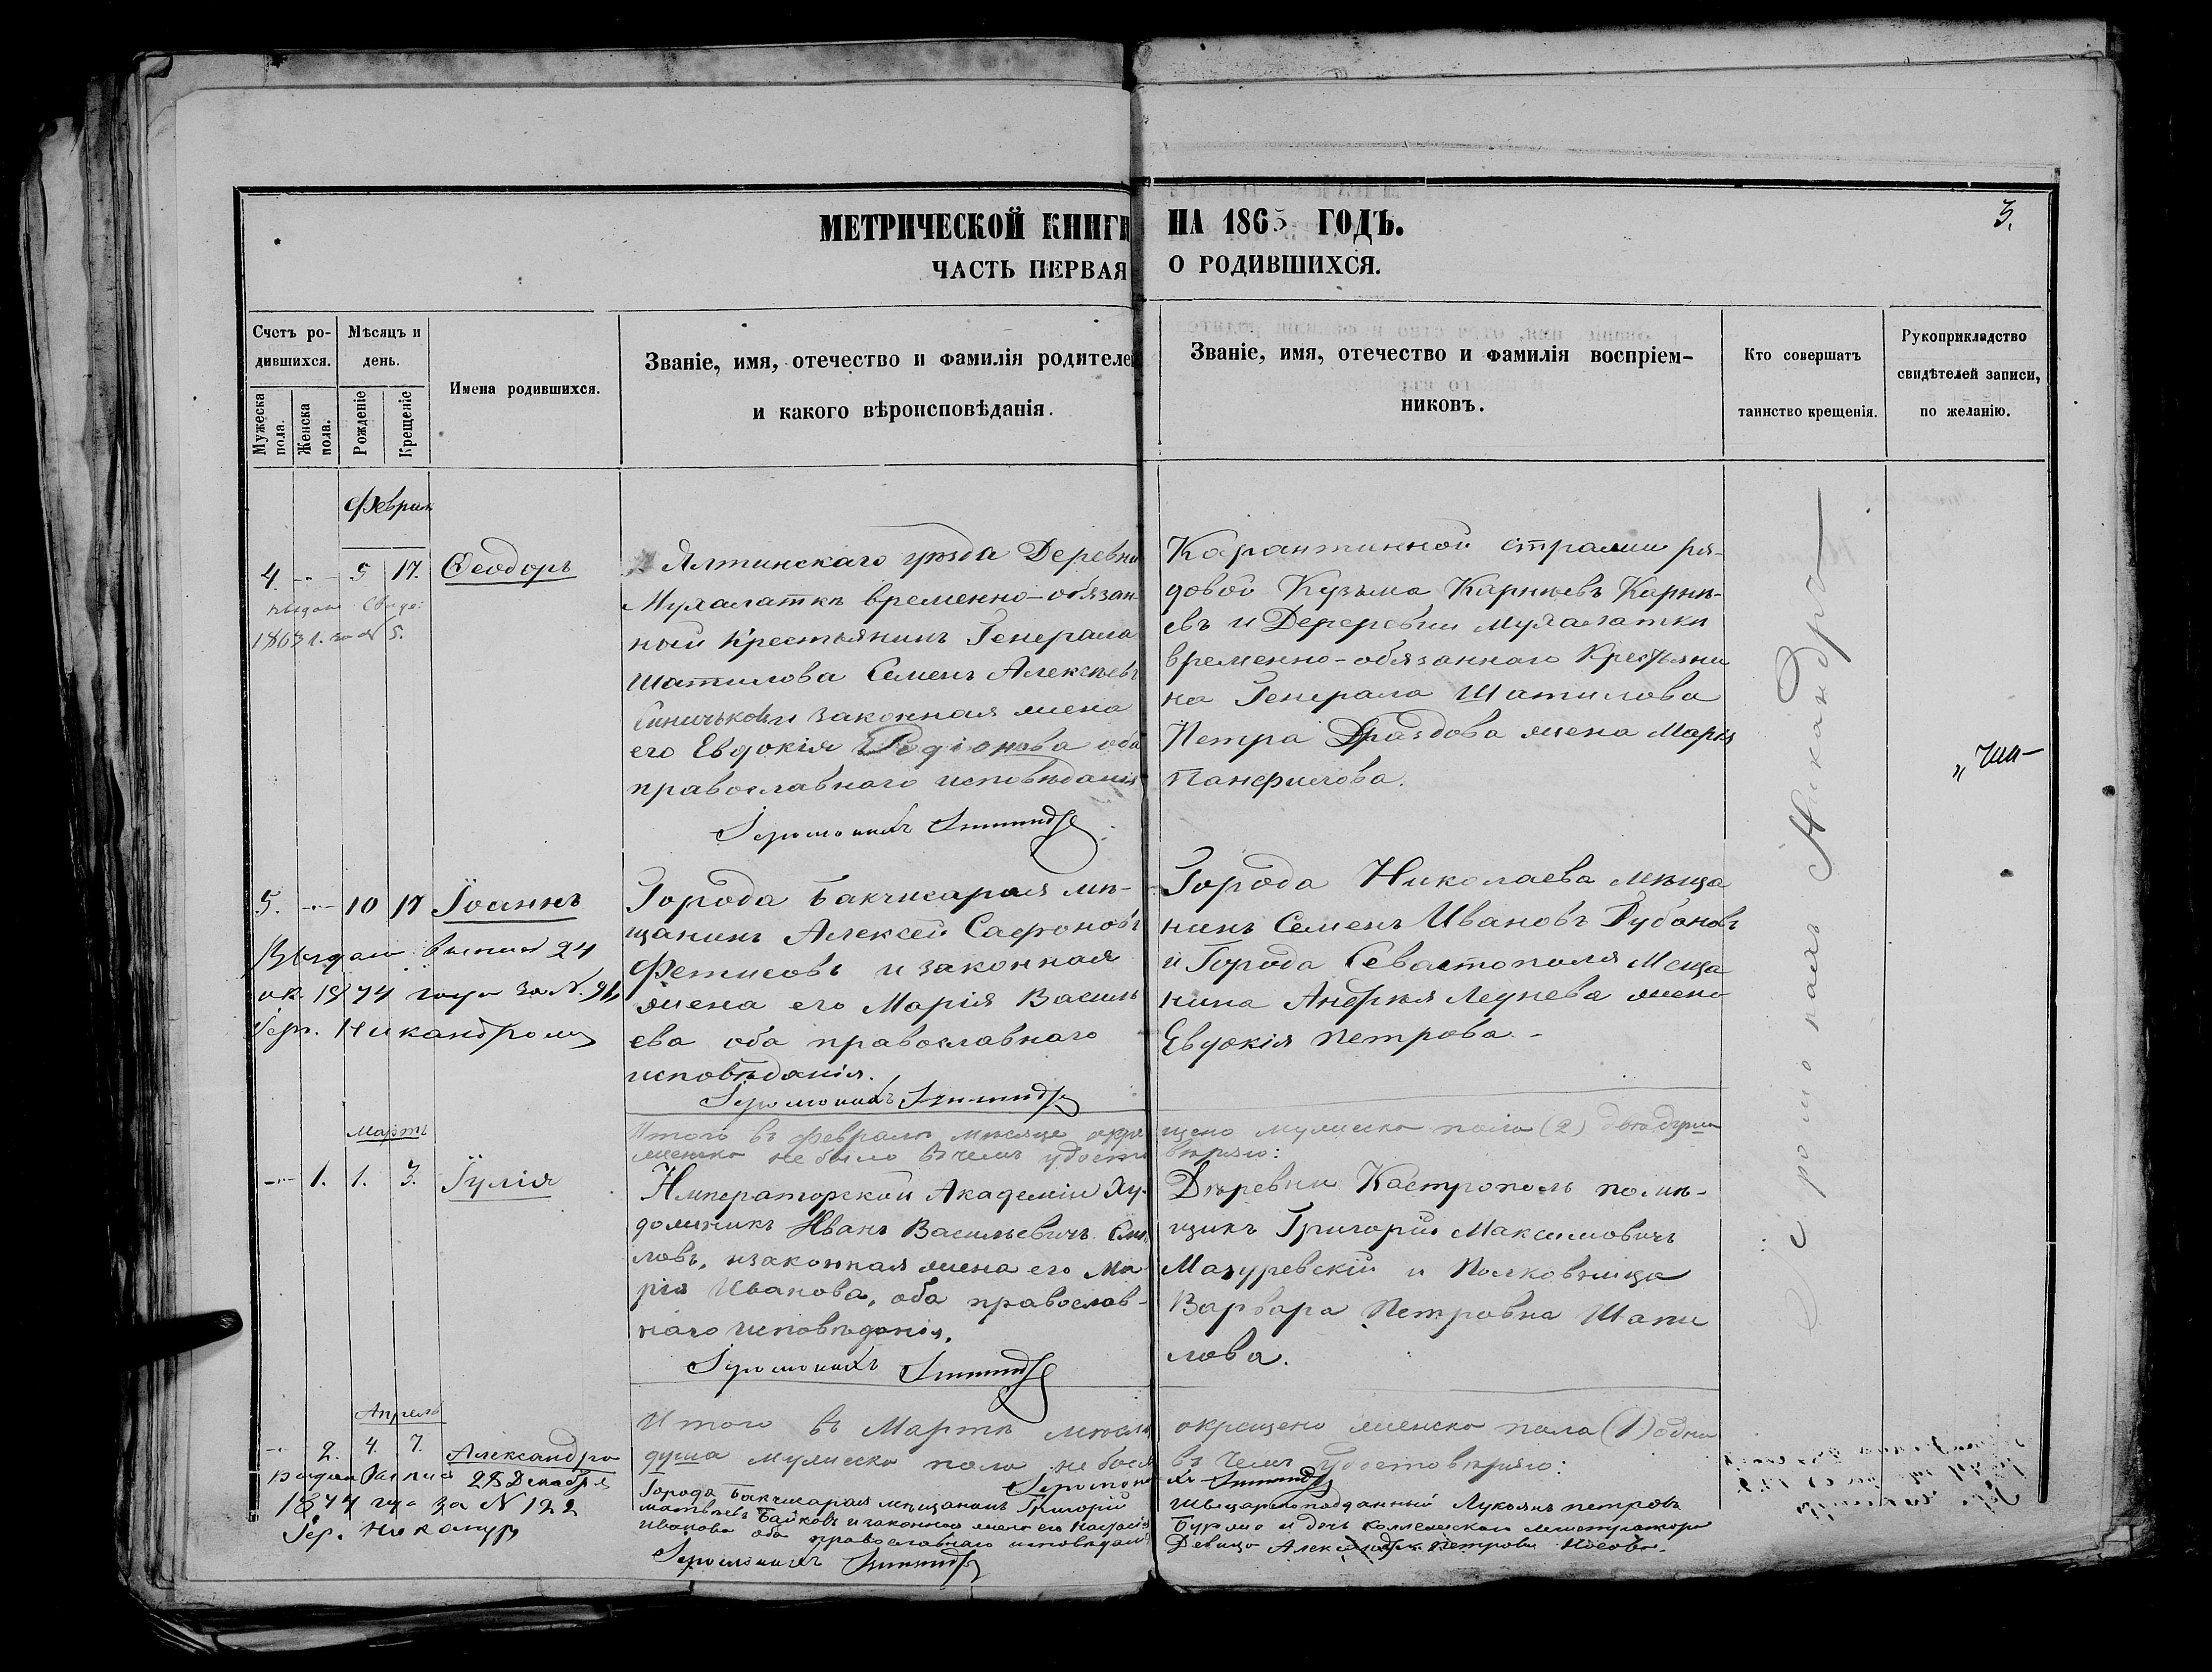 МЕТРИЧЕСКОЙ КНИГИ НА 1863 ГОДЪ.
3.
ЧАСТЬ ПЕРВАЯ О РОДИВШИХСЯ.
Счетъ ро-
дившихся.
Мужеска пола.
Женска пола.
Мѣсяцъ и
день.
Рожденіе
Крещеніе
Имена родившихся.
Званіе, имя, отечество и фамилія родителей
и какого вѣроисповѣданія.
Званіе, имя, отечество и фамилія воспріем-
никовъ.
Кто совершатъ
таинство крещенія.
Рукоприкладство
свидѣтелей записи,
по желанію.
Феврал
4. 5 17. Ѳеодоръ
1863 г. за № 5.
Ялтинскаго уѣзда Деревни
Мухалатки временно-обязан-
ный Крестьянинъ Генерала
Шатилова Семенъ Алексѣевъ
и законная жена
его Евдокія Родіонова оба
православнаго исповѣданія
Іеромонахъ
Карантинной стражи ря-
довой Кузьма Карнѣевъ Карнѣ-
евъ и Дереревни Мухалатки
временно-обязаннаго Крестьяни
на Генерала Шатилова
Петра Дроздова жена Марія
Панфилова.
5. 10 17 Іоаннъ
Выдан 24
ок. 1874 года за N. 94
Іер. Никандромъ
Города Бакчисарая мѣ-
щанинъ Алексей Сафроновъ
Фетисовъ и законная
жена его Марія Василь
ева оба православнаго
исповѣданія.
Іеромонахъ
Города Николаева мѣща
нинъ Семенъ Ивановъ Губановъ
и Города Севастополя Меща
нина Андрѣя Леунева жена
Евдокія Петрова.
Итого въ Февралѣ мѣсяце окре
щено мужеска пола (2) две души
женска не было въ чемъ удосто
вѣряю:
Мартъ
1. 1. 3. Іулія
Императорской Академіи Ху-
дожникъ Иванъ Васильевичъ
ловъ, и законная жена его Ма
рія Иванова, оба православ-
наго исповѣданія.
Іеромонахъ
Деревни Кастрополь помѣ-
щикъ Григорій Максимовичъ
Мазуревскій и Полковница
Варвара Петровна Шати
лова.
Итого въ Мартѣ мѣсяц
окрещено женска пола (1) одна
душа мужеска пола не было
въ чемъ удостовѣряю:
Іеромонахъ
Апрель
2. 4. 7. Александра
28 Декабря
1874 г. за N 122
Іер. Никандръ
Города Бакчисарая мѣщанинъ Григорій
Матвѣевъ Байковъ и законная жена его
Иванова оба православнаго исповѣдані
Іеромонахъ
Швецарскоподданный Луколнъ Петровъ
и дочь
Девица Александра Петрова Носова.
Іеромонахъ Никандръ